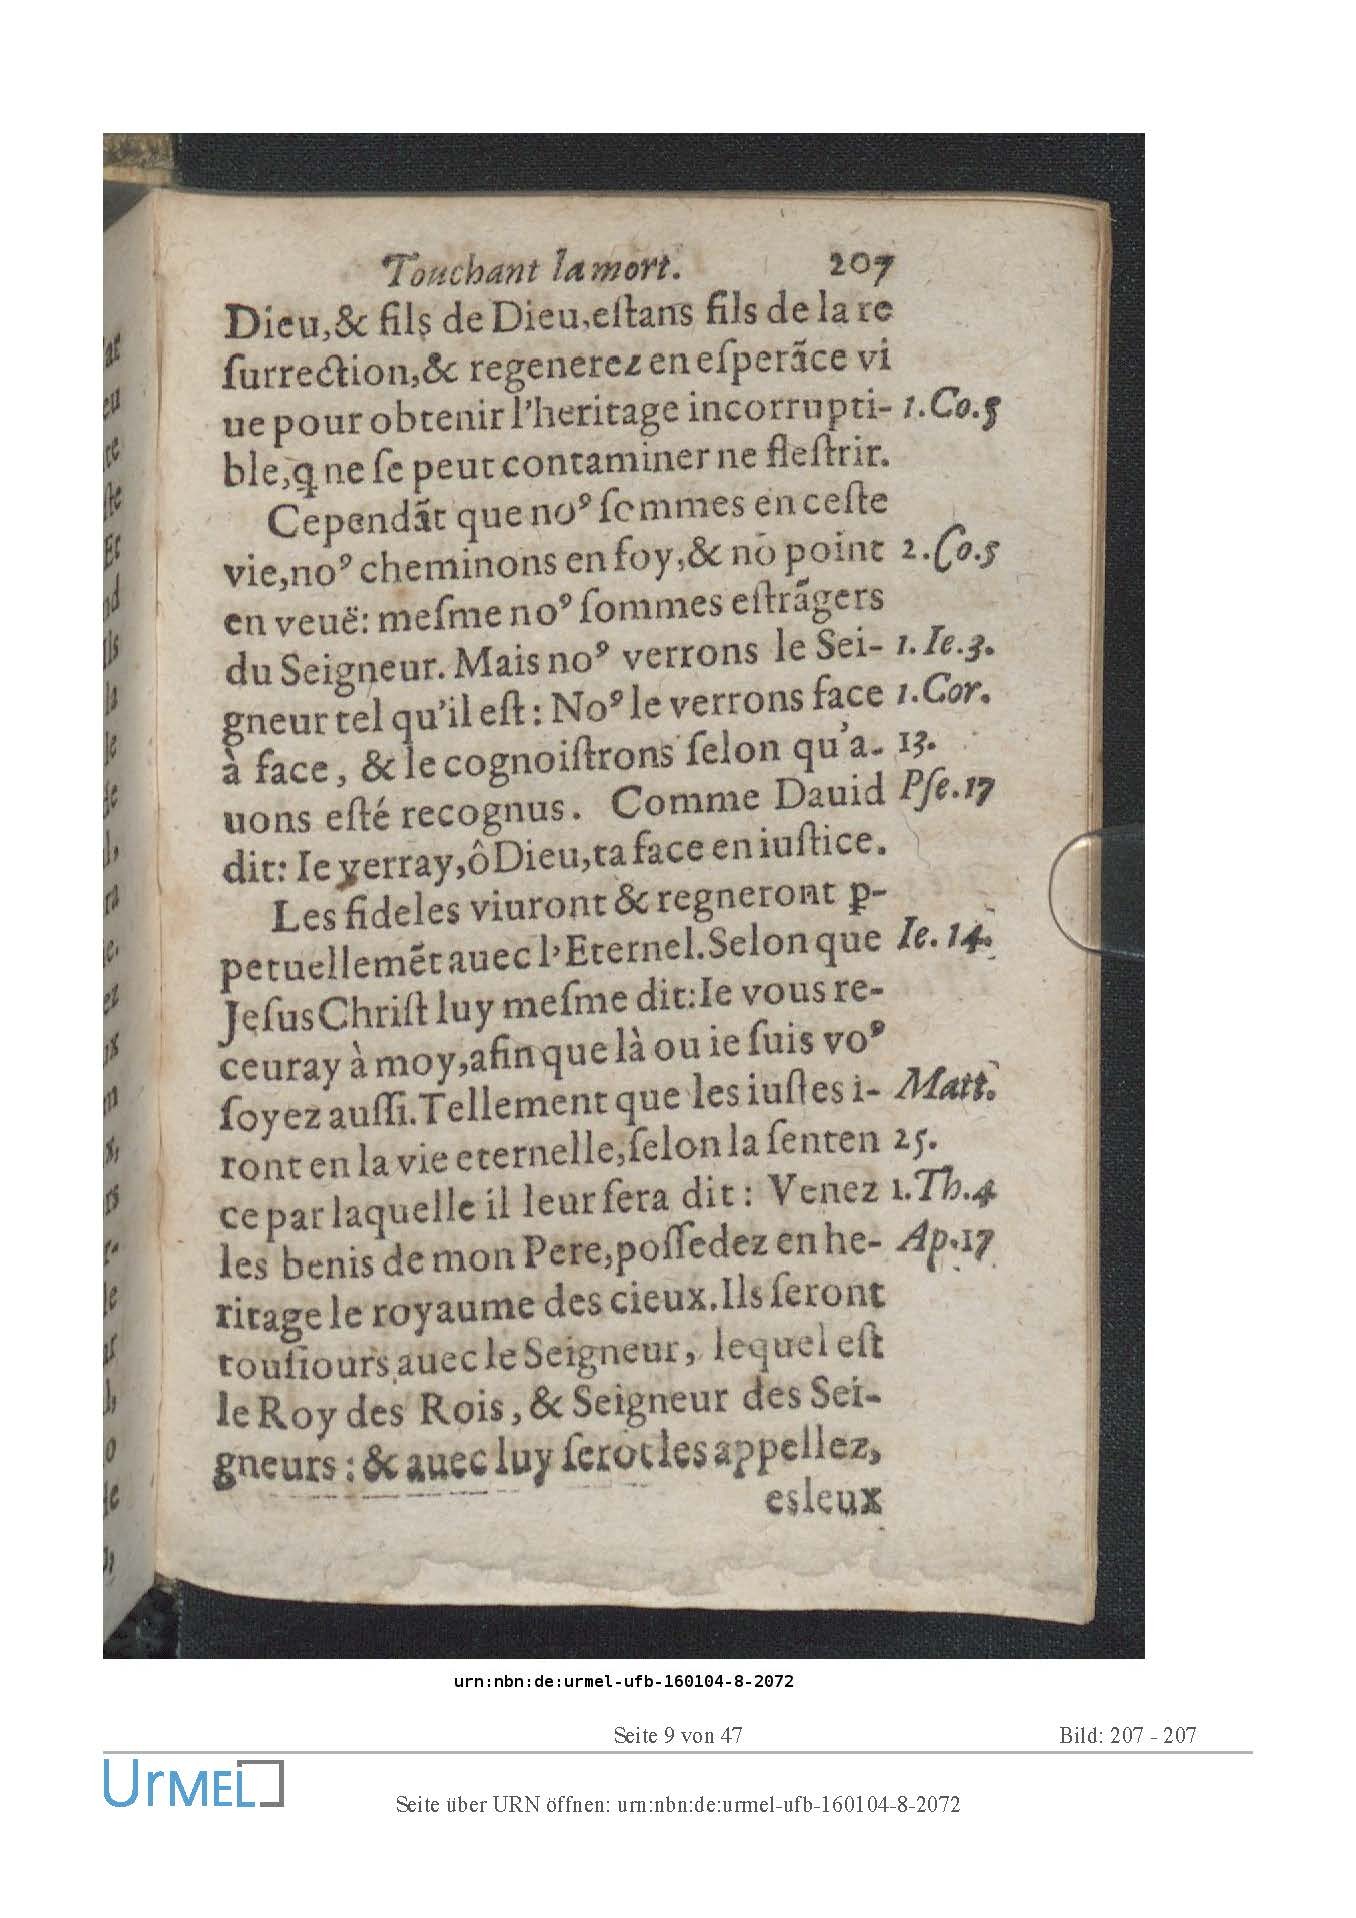 Touchant la mort. 207
Dieu,& fils de Dieu,eſtans fils de la re
ſurrection,& regenerez en eſperãce vi
ue pour obtenir l'heritage incorrupti- 1.Co.5
ble,q ne ſe peut contaminer ne fleſtrir.
Cependãt que noꝰ ſommes en ceſte
vie,noꝰ cheminons en foy,& nō point 2.Co.5
en veuë: meſme noꝰ ſommes eſtrãgers
du Seigneur. Mais noꝰ verrons le Sei- 1.Ie.3.
gneur tel qu'il eſt: Noꝰ le verrons face 1.Cor.
à face, & le cognoiſtrons ſelon qu'a- 13.
uons eſté recognus. Comme Dauid Pſe.17
dit: Ie verray,ô Dieu,ta face en iuſtice.
Les fideles viuront & regneront ꝑ-
petuellemẽt auec l'Eternel.Selon que Ie.14.
Jeſus Chriſt luy meſme dit:Ie vous re-
ceuray à moy,afin que là ou ie ſuis voꝰ
ſoyez auſſi.Tellement que les iuſtes i- Matt.
ront en la vie eternelle,ſelon la ſenten 25.
ce par laquelle il leur ſera dit: Venez 1.Th.4
les benis de mon Pere,poſſedez en he- Ap.17
ritage le royaume des cieux.Ils ſeront
touſiours auec le Seigneur, lequel eſt
le Roy des Rois, & Seigneur des Sei-
gneurs: & auec luy ſerōt les appellez,
esleux
urn:nbn:de:urmel-ufb-160104-8-2072
Seite 9 von 47 Bild: 207 - 207
UrMEL
Seite über URN öffnen: urn:nbn:de:urmel-ufb-160104-8-2072